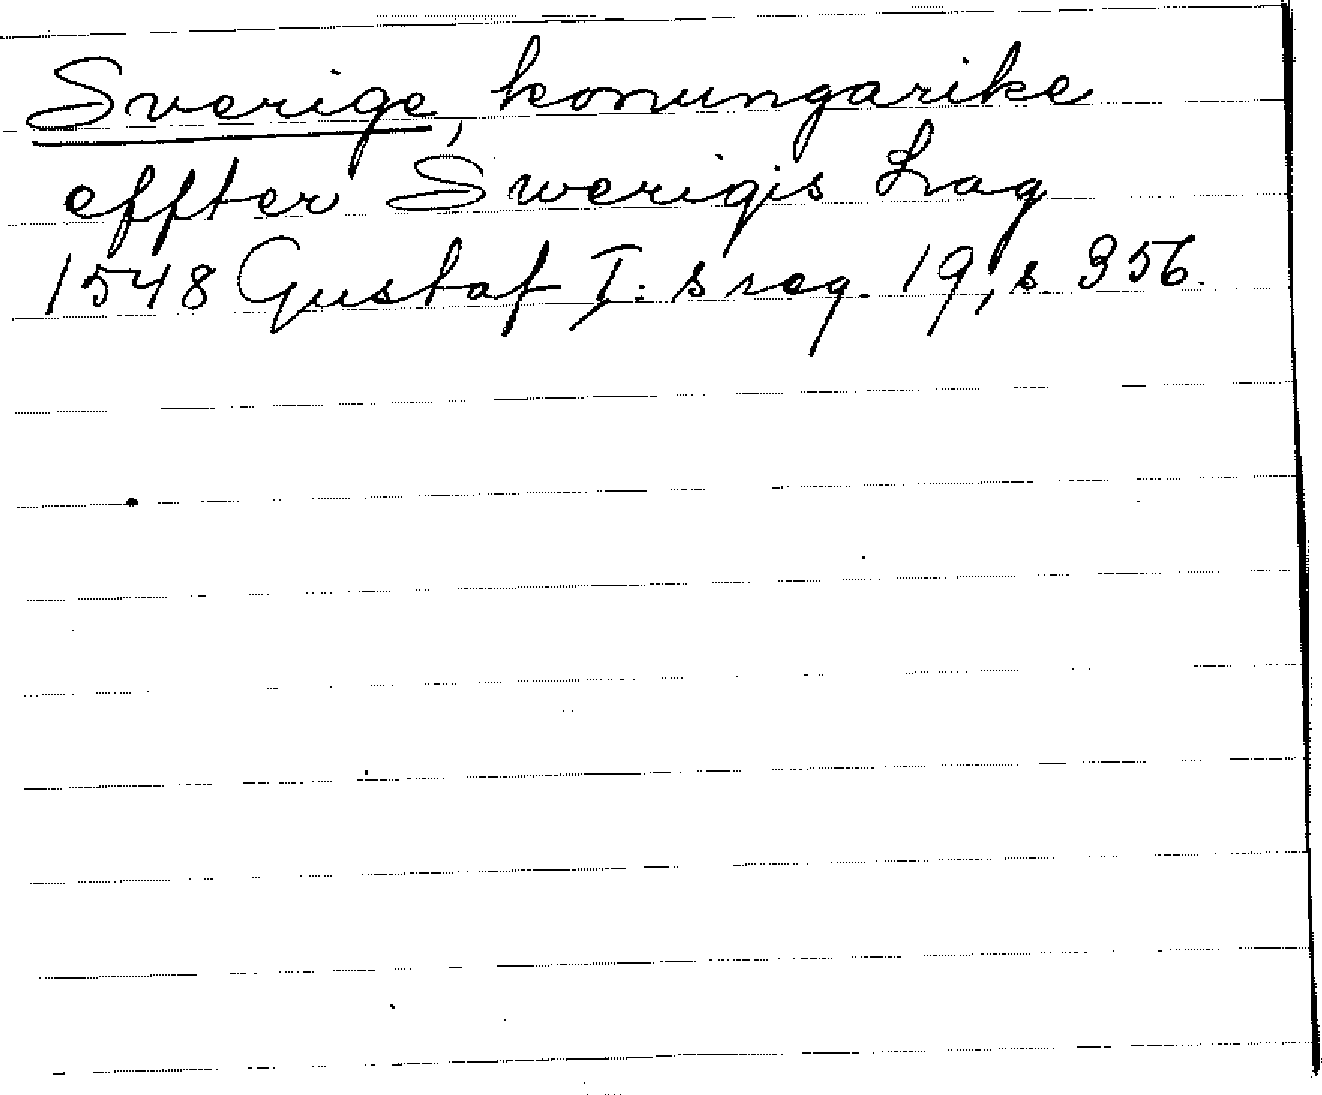 Sverige, konungarike
effter Swerigis Lag
1548 Gustaf I:s reg. 19, s 356.